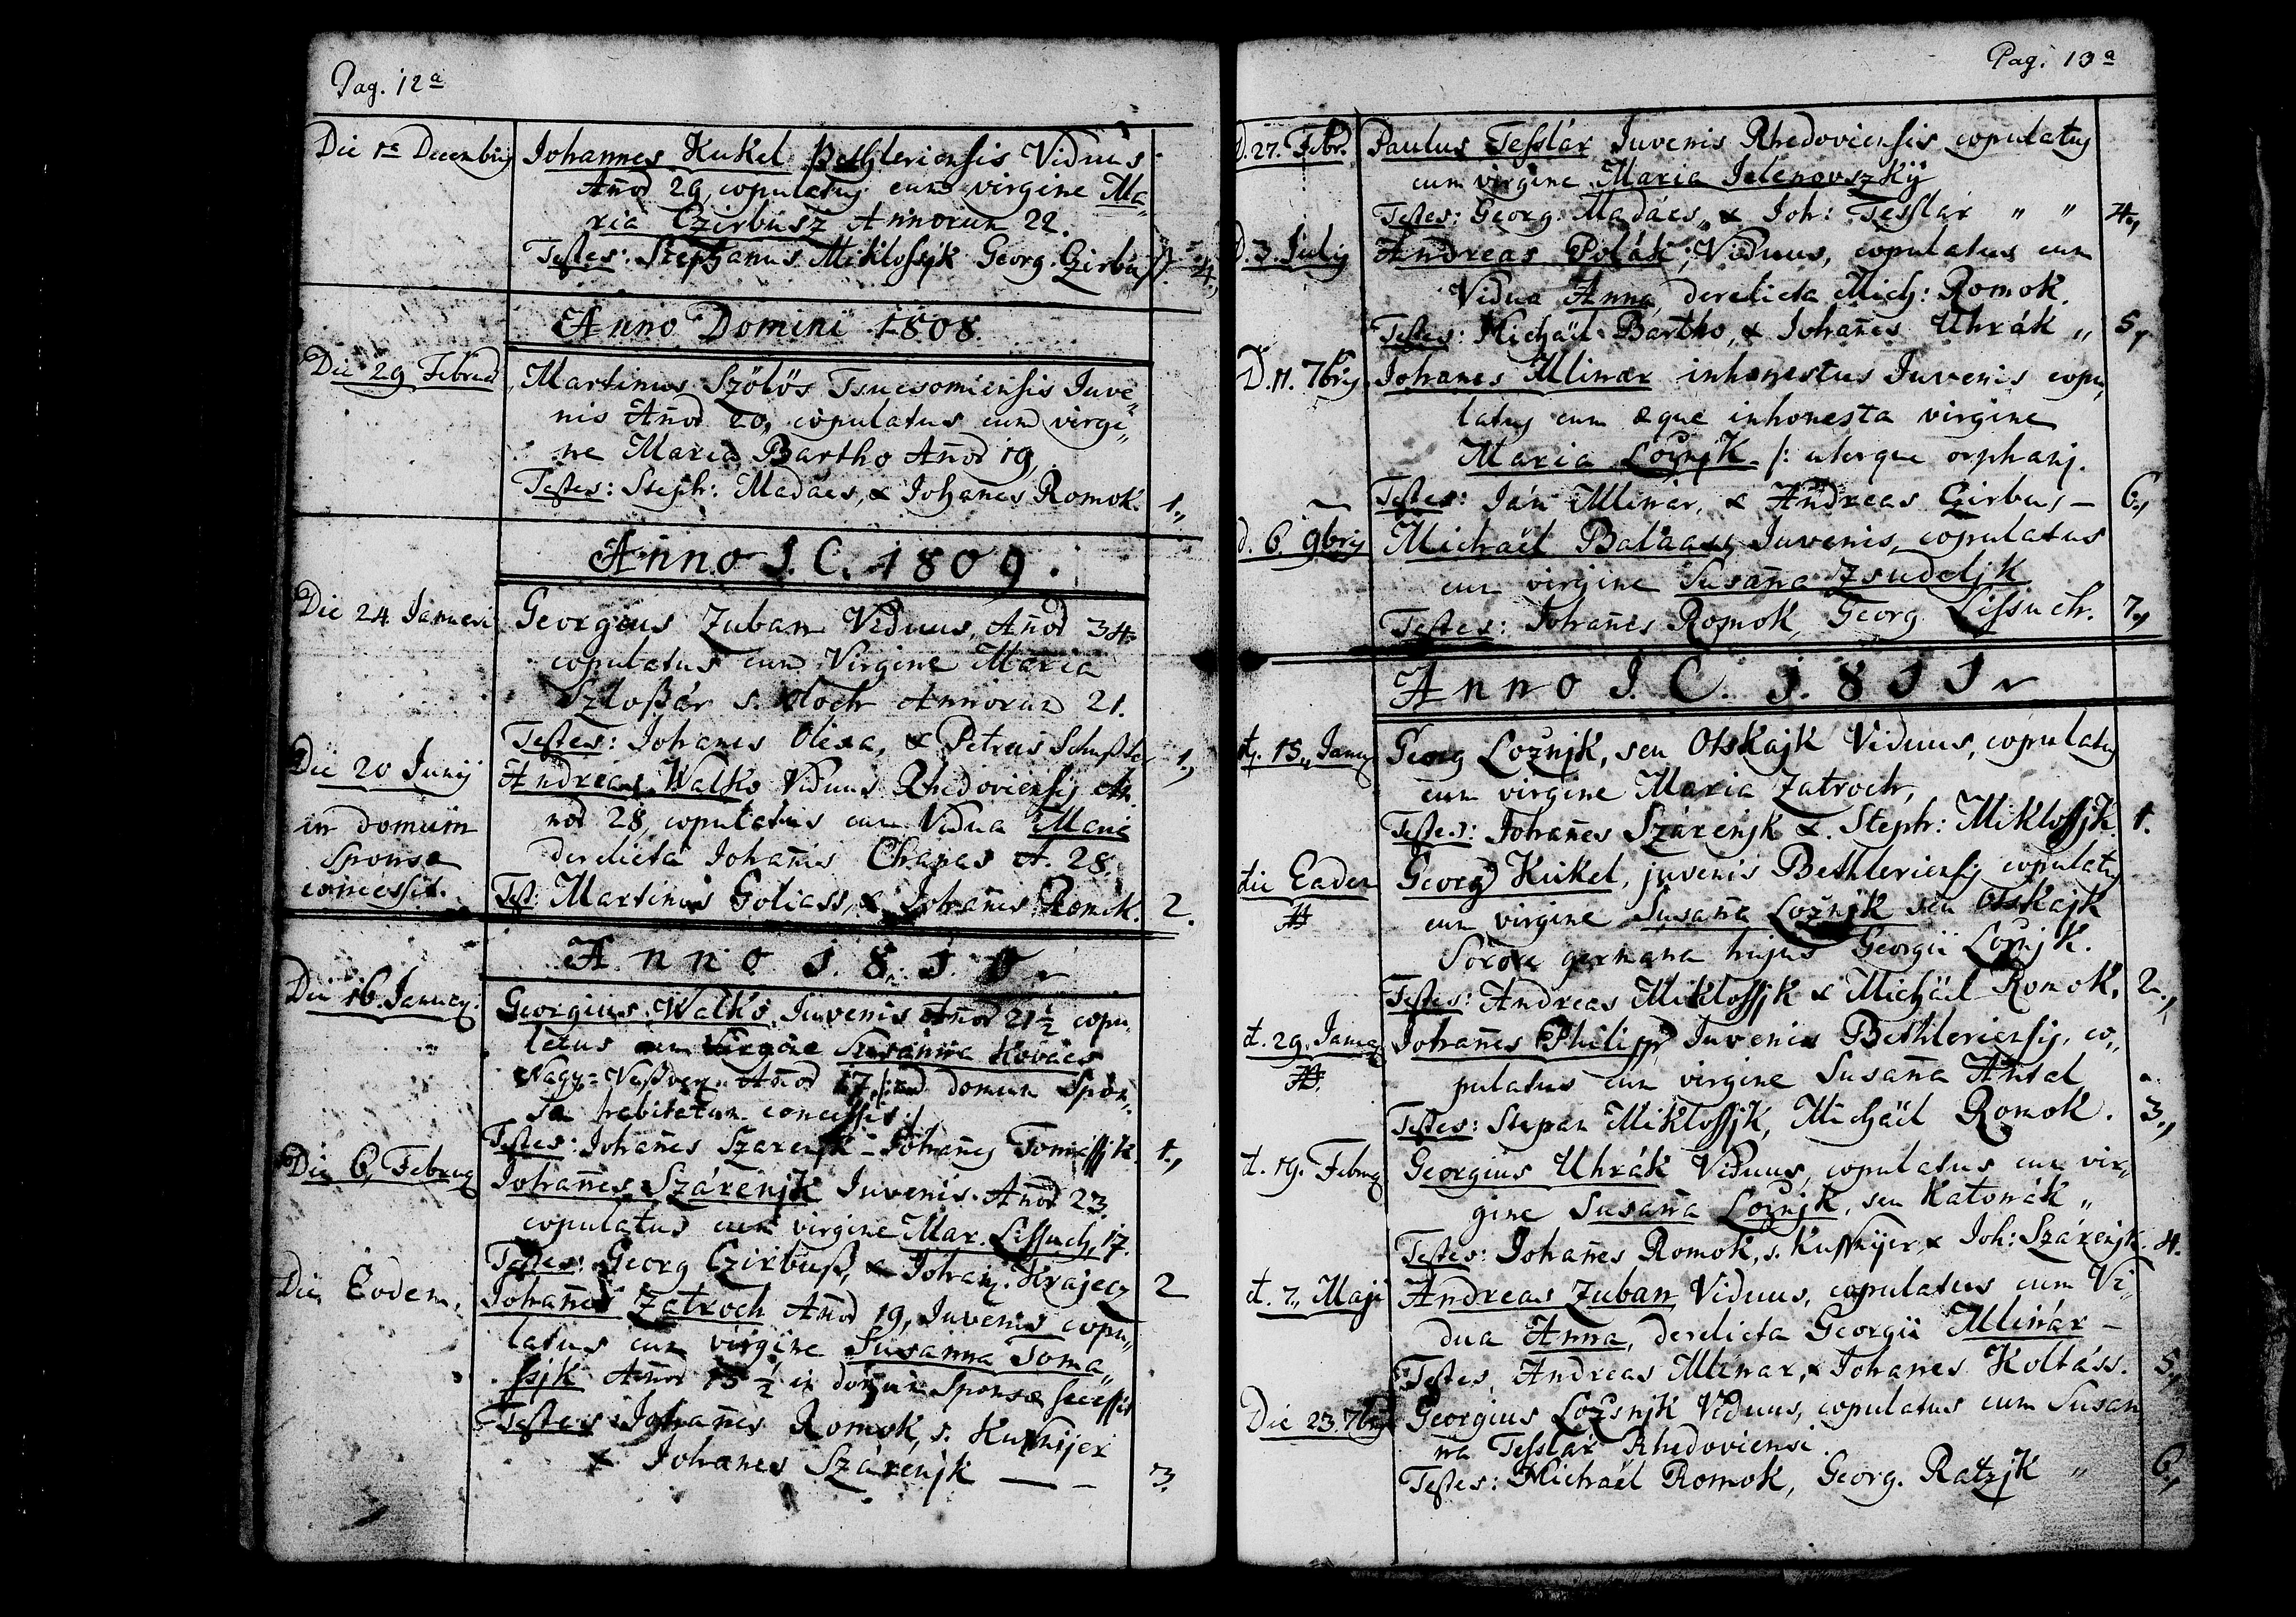 Pag. 12a
Die 1a Decembrij Johannes Kukel Bethleriensis Viduus
Añor 29, copulatus cum virgine Ma„
ria Czirbusz Annorum 22.
Testes: Stephanus Miklossjk Georg. Czirbus 4.,
Anno Domini 1808
Die 29 Febru Martinus Szölös Tsucsomiensis Juve„
nis Añor 20, copulatus cum virgi„
ne Maria Bartho Añor 19,
Testes: Steph: Madács, & Johañes Romok. 1.,
Anno J. C. 1809.
Die 24 Januari Georgius Zuban Viduus, Añor 34
copulatus cum Virgine Maria
Szloßár s. Annorum 21.
Testes: Johanes Olexa, & Petrus Schuster 1.,
Die 20 Junij Andreas Walko Viduus Rhedoviensis An
in domum nor 28, copulatus cum Vidua Maria
Sponsæ derelicta Johañis Chanas A. 28.
concessit. Test: Martinus Goliass, & Johañes Romok. 2.
Anno 1810
Die 16. Januar. Georgius Walko Juvenis Añor 21½ copu„
latus cum Virgine Susanna Kovács
Nagy-Veßverens Añor 17, /: ad domum Spon„
sa habitatum concessit :/
Testes: Johañes Szarenjk – Johañes Tomassjk. 1.,
Die 6, Februar Johañes Szárenjk Juvenis Añor 23
copulatus cum virgine Mar. Lissuch, 17.
Testes: Georg Czirbuß, & Johañ. Krajecz 2
Die Eodem, Johañes Zatroch Añor 19, Juvenis copu„
latus cum virgine Susanna Toma„
ssjk Añor 15½ in domum Sponsæ
Testes Johañes Romok, s. Kusnijer
& Johanes Szárenjk — – 3.
Pag. 13a
D. 27. Febr. Paulus Tesslár Juvenis Rhedoviensis copulatus
cum virgine Maria Jelenovszkÿ
Testes: Georg: Madács, & Joh: Tesslár „ „ 4.,
D. 3. Julij Andreas Polák, Viduus, copulatus cum
Vidua Anna derelicta Mich: Romok.
Testes: Michäel Bartho, & Johañes Uhrák „ 5,
D. 11. 7bris Johanes Mlinar inhonestus Juvenis copu„
latus cum æque inhonesta virgine
Maria Ložnjk /: uterque orphanj.
Testes: Ján Mlinar, & Andreas Czirbus – 6.,
d. 6. 9bris Michäel Balaass Juvenis, copulatus
cum virgine Susaña Zsudeljk
Testes: Johañes Romok, Georg Lissuch. 7.,
Anno J. C. 1811
d. 15. Janu Georg Ložnjk, seu Otskajk Viduus, copulatus
cum virgine Maria Zatroch,
Testes: Johañes Szárenjk &. Steph: Miklossjk 1.
die Eadem Georg Kukel, juvenis Bethleriensis copulatus
cum virgine Susaña Ložnjk seu Otskajk
Sorore germana hujus Georgii Ložnjk.
Testes: Andreas Miklossjk & Michäel Romok. 2.,
d. 29. Janua Johañes Philipp Juvenis Bethleriensis, co„
pulatus cum virgine Susaña Antal
Testes: Stepan Miklossjk, Michäel Romok. 3.,
d. 19. Februa Georgius Uhrák Viduus, copulatus cum vir„
gine Susaña Ložnjk, seu Katonák „
Testes: Johañes Romok, s. Kussnijer, & Joh: Szárenjk 4.
d. 7„ Maji Andreas Zuban Viduus, copulatus cum Vi„
dua Anna, derelicta Georgii Mlinár –
Testes, Andreas Mlinar, & Johanes Koltáss. 5.,
Die 23. 7bris Georgius Ložsnjk Viduus, copulatus cum Susan
na Tesslár Rhedoviensi.
Testes: Michäel Romok, Georg. Ratzjk „ 6.,